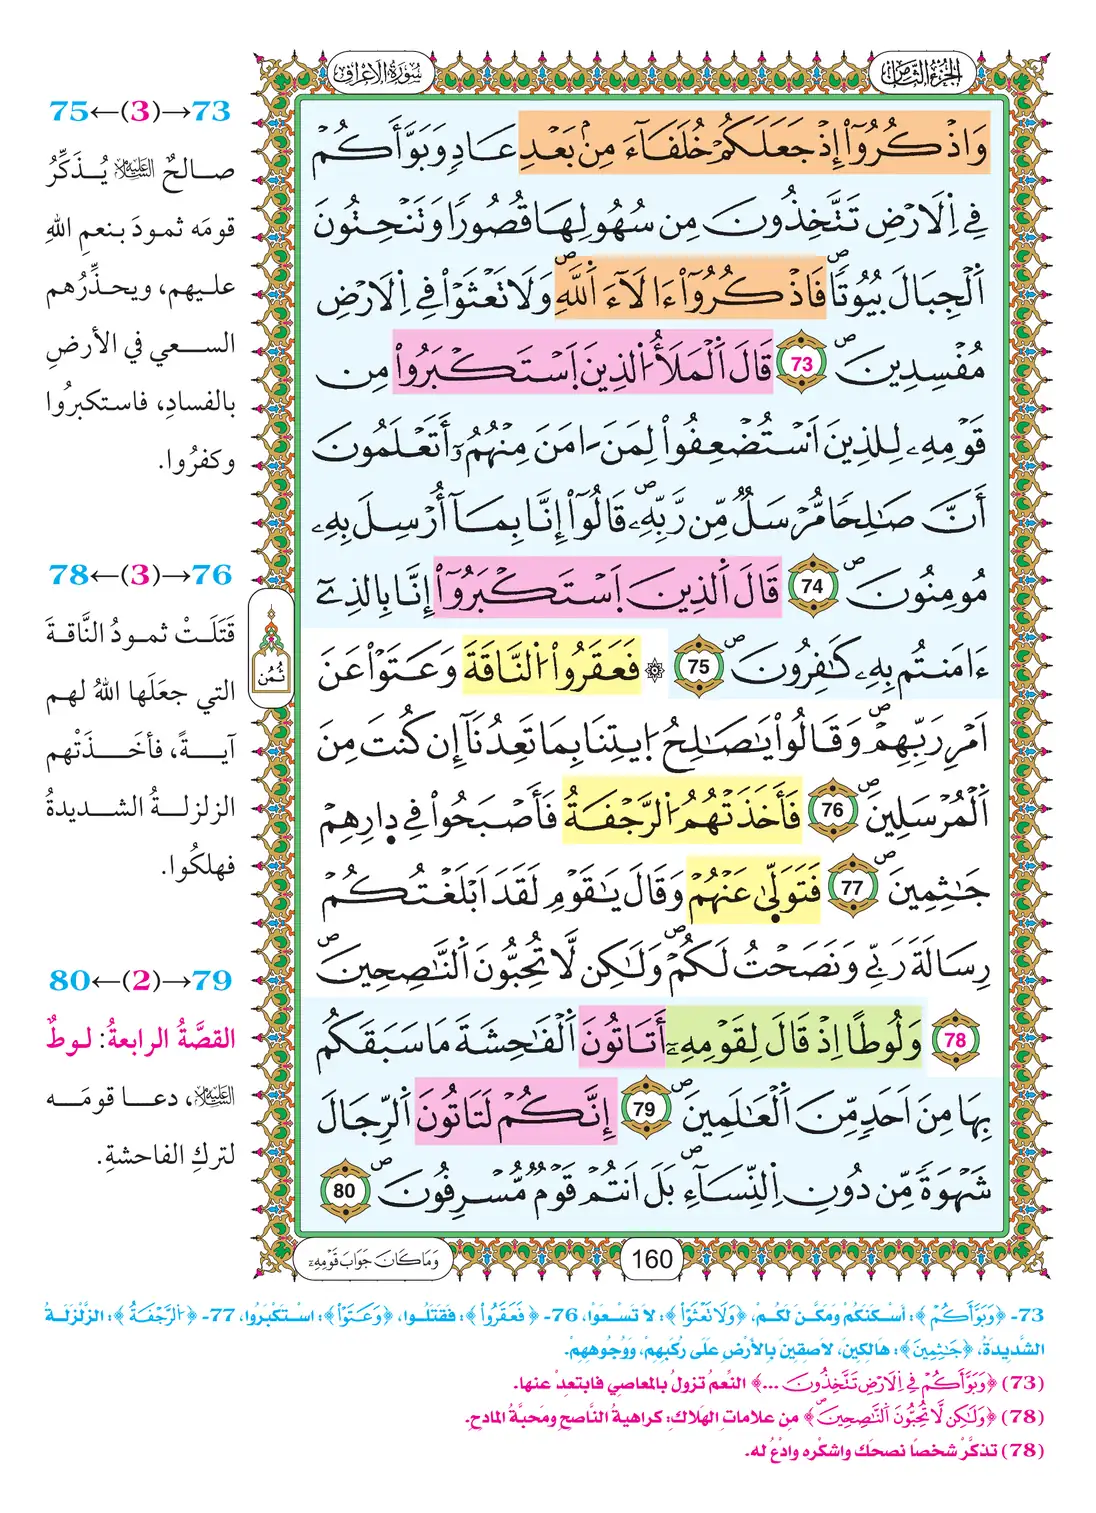 الجزء الثامن
سورة الاعراف
وَاذْكُرُوٓاْ إِذْ جَعَلَكُمْ خُلَفَآءَ مِنۢ بَعْدِ عَادٍ وَبَوَّأَكُمْ
فِے اِلَارْضِ تَتَّخِذُونَ مِن سُهُولِهَا قُصُورًا وَتَنْحِتُونَ
اَ۬لْجِبَالَ بُيُوتًا فَاذْكُرُوٓاْ ءَالَآءَ اَ۬للَّهِ وَلَا تَعْثَوْاْ فِے اِلَارْضِ
مُفْسِدِينَ 73 قَالَ اَ۬لْمَلَأُ اُ۬لذِينَ اَ۪سْتَكْبَرُواْ مِن
قَوْمِهِۦ لِلذِينَ اَ۟سْتُضْعِفُواْ لِمَنَ ـامَنَ مِنْهُمُۥٓ أَتَعْلَمُونَ
أَنَّ صَٰلِحًا مُّرْسَلٌ مِّن رَّبِّهِۦ قَالُوٓاْ إِنَّا بِمَآ أُرْسِلَ بِهِۦ
مُومِنُونَ 74 قَالَ اَ۬لذِينَ اَ۪سْتَكْبَرُوٓاْ إِنَّا بِالذِےٓ
ءَامَنتُم بِهِۦ كَٰفِرُونَ 75 ۞ فَعَقَرُواْ اُ۬لنَّاقَةَ وَعَتَوْاْ عَنَ
اَمْرِ رَبِّهِمْ وَقَالُواْ يَٰصَٰلِحُ اُ۪يتِنَا بِمَا تَعِدُنَآ إِن كُنتَ مِنَ
اَ۬لْمُرْسَلِينَ 76 فَأَخَذَتْهُمُ اُ۬لرَّجْفَةُ فَأَصْبَحُواْ فِے دِارِهِمْ
جَٰثِمِينَ 77 فَتَوَلَّىٰ عَنْهُمْ وَقَالَ يَٰقَوْمِ لَقَدَ اَبْلَغْتُكُمْ
رِسَالَةَ رَبِّے وَنَصَحْتُ لَكُمْ وَلَٰكِن لَّا تُحِبُّونَ اَ۬لنَّٰصِحِينَ
78 وَلُوطًا اِذْ قَالَ لِقَوْمِهِۦٓ أَتَاتُونَ اَ۬لْفَٰحِشَةَ مَا سَبَقَكُم
بِهَا مِنَ اَحَدٍ مِّنَ اَ۬لْعَٰلَمِينَ 79 إِنَّكُمْ لَتَاتُونَ اَ۬لرِّجَالَ
شَهْوَةً مِّن دُونِ اِ۬لنِّسَآءِ بَلَ اَنتُمْ قَوْمٌ مُّسْرِفُونَ 80
وَمَا كَانَ جَوَابَ قَوْمِهِۦٓ
160
ثُمُن
75←(3)→73
صالحٌ عليه السلام يُذَكِّرُ
قومَه ثمودَ بنعمِ اللهِ
عليهم، ويحذِّرُهم
السعي في الأرضِ
بالفسادِ، فاستكبرُوا
وكفرُوا.
78←(3)→76
قَتَلَتْ ثمودُ النَّاقةَ
التي جعَلَها اللهُ لهم
آيةً، فأخَذَتْهم
الزلزلةُ الشديدةُ
فهلكُوا.
80←(2)→79
القصَّةُ الرابعةُ: لوطٌ
عليه السلام، دعا قومَه
لتركِ الفاحشةِ.
73- ﴿وَبَوَّأَكُمْ﴾: أَسْكَنَكُمْ وَمَكَّنَ لَكُمْ، ﴿وَلَا تَعْثَوْاْ﴾: لَا تَسْعَوْا، 76- ﴿فَعَقَرُواْ﴾: فَقَتَلُوا، ﴿وَعَتَوْاْ﴾: اسْتَكْبَرُوا، 77- ﴿اُ۬لرَّجْفَةُ﴾: الزَّلْزَلَةُ
الشَّدِيدَةُ، ﴿جَٰثِمِينَ﴾: هَالِكِينَ، لَاصِقِينَ بِالأَرْضِ عَلَى رُكَبِهِمْ، وَوُجُوهِهِمْ.
(73) ﴿وَبَوَّأَكُمْ فِے اِلَارْضِ تَتَّخِذُونَ ...﴾ النِّعمُ تزولُ بالمعاصي فابتعدْ عنها.
(78) ﴿وَلَٰكِن لَّا تُحِبُّونَ اَ۬لنَّٰصِحِينَ﴾ من علاماتِ الهَلاكِ: كراهيةُ النَّاصحِ ومَحبَّةُ المادحِ.
(78) تذكَّرْ شخصًا نصحَك واشكُره وادْعُ له.